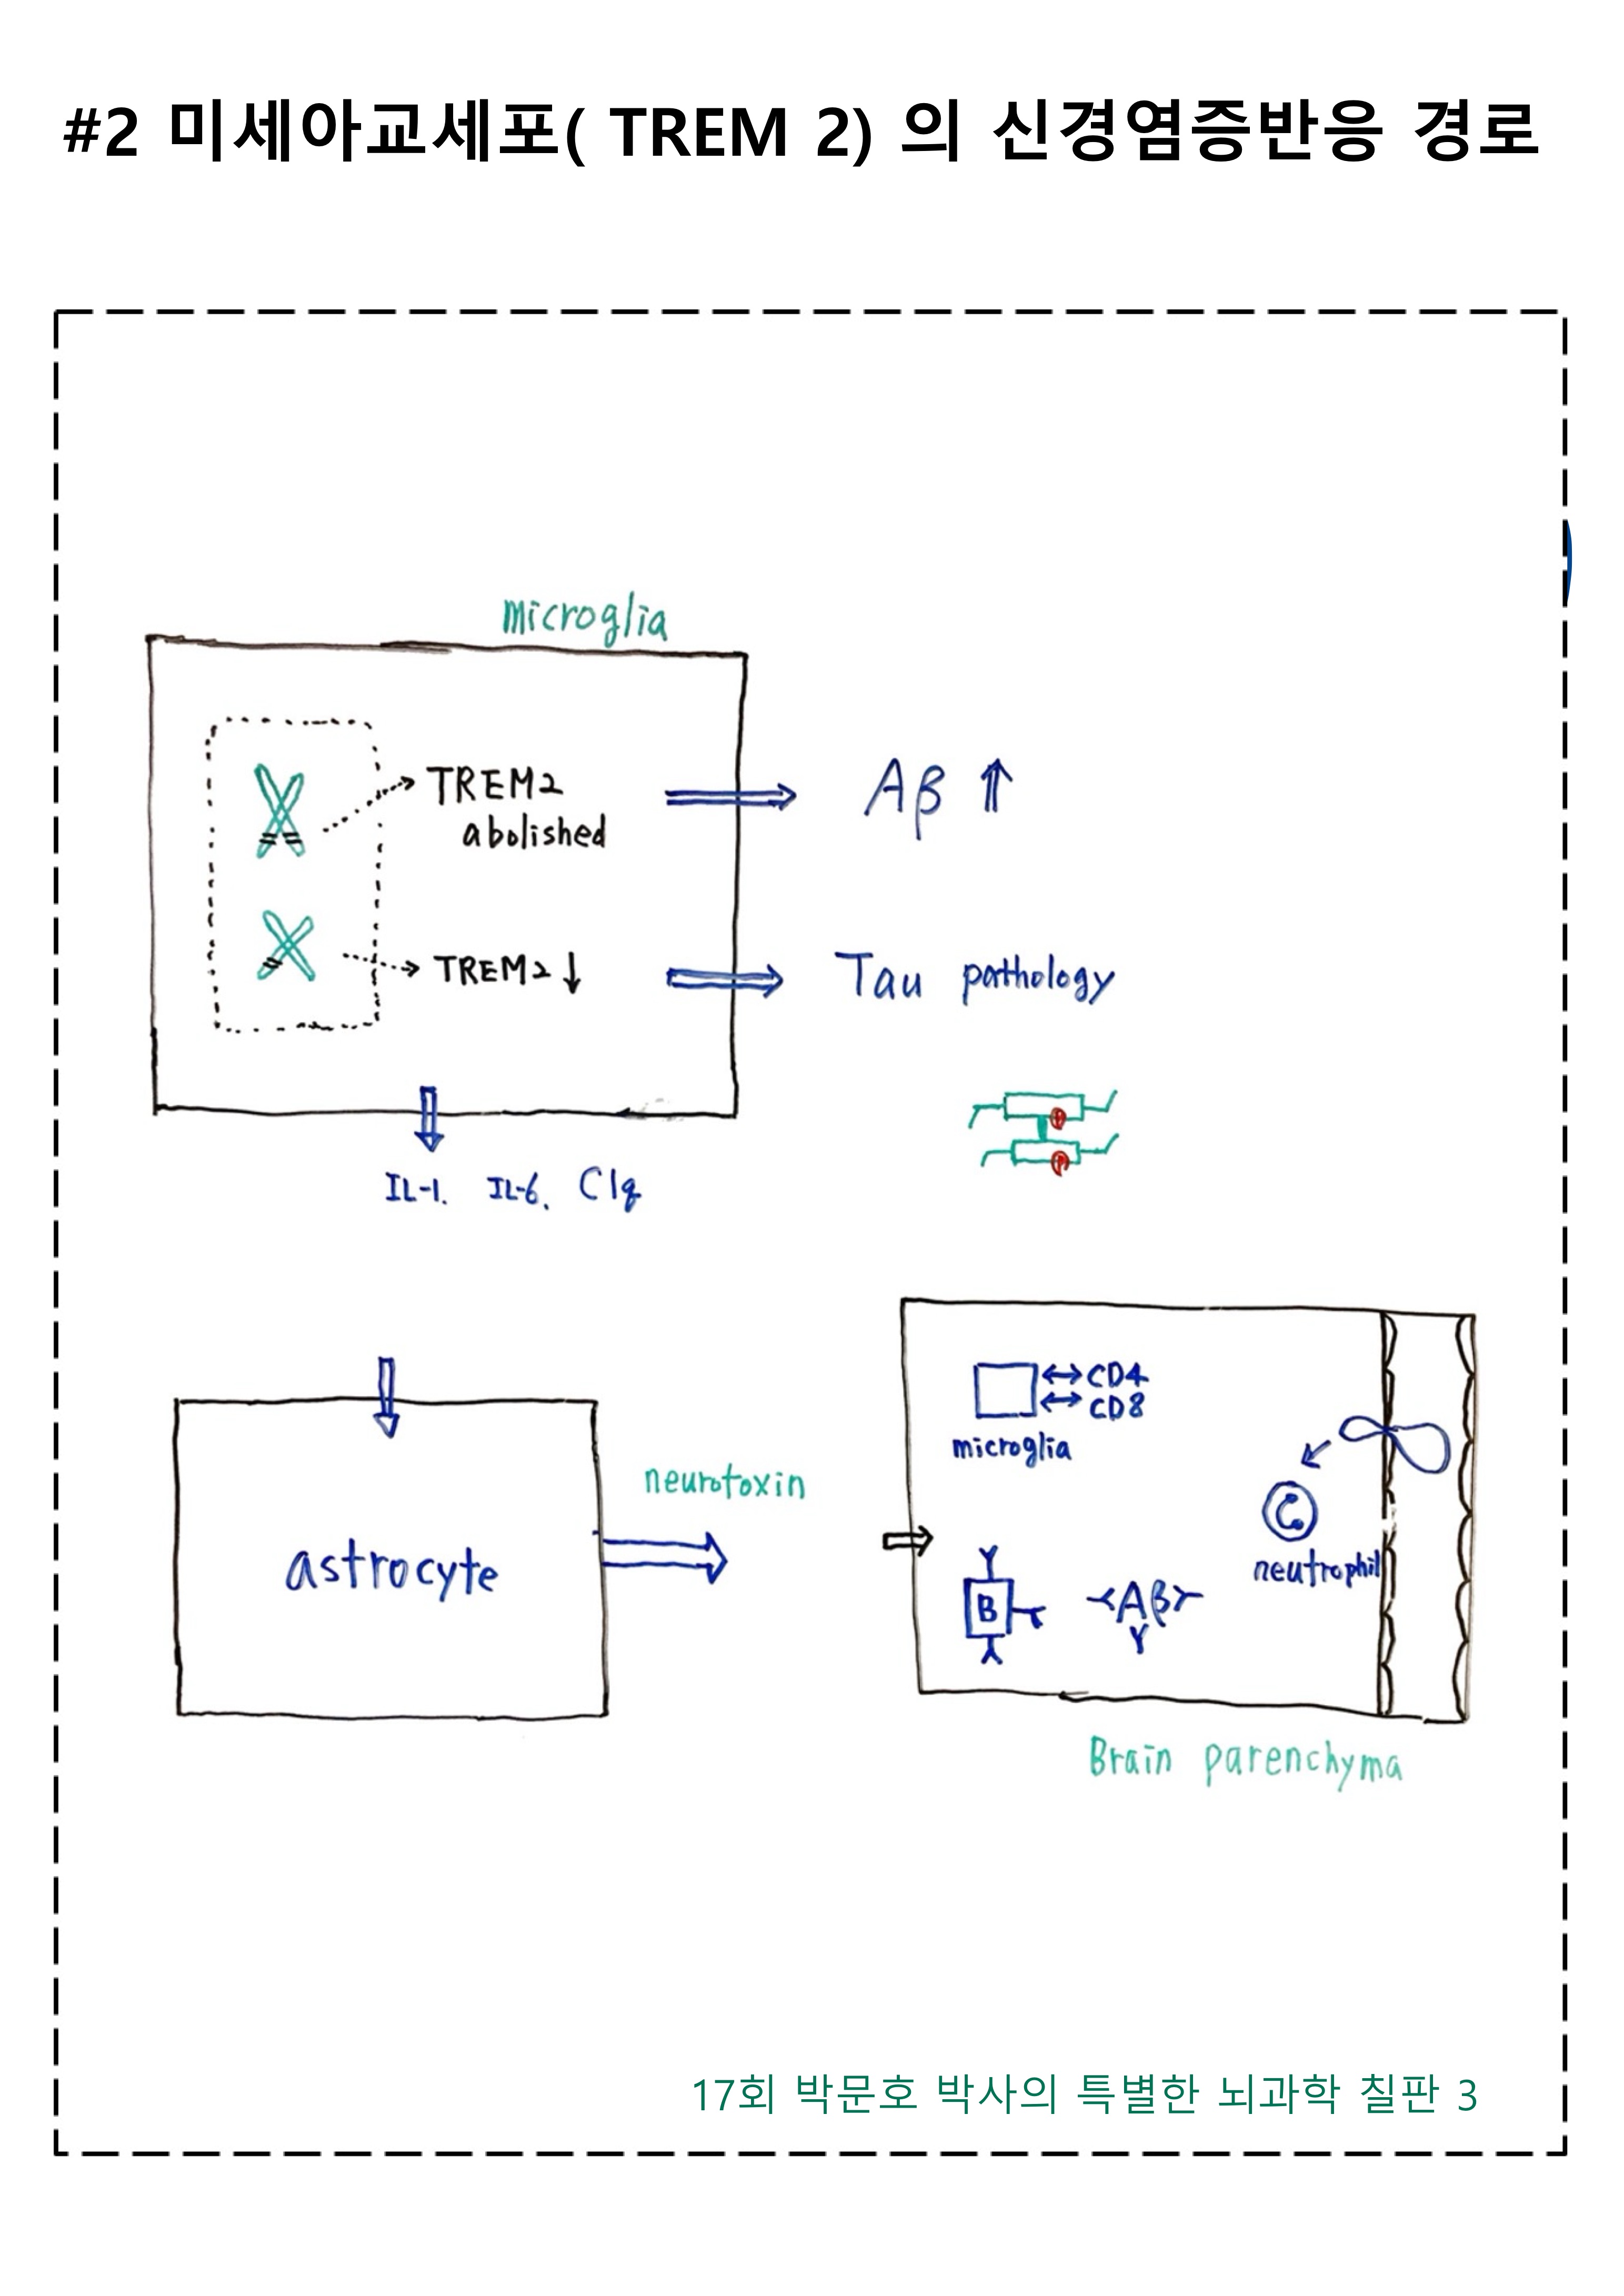 #2 미세아교세포( TREM 2) 의 신경염증반응 경로
microglia
TREM2
abolished
Aβ ⇑
TREM2 ↓
Tau pathology
P
P
IL-1. IL-6. C1q
CD4
CD8
microglia
neurotoxin
astrocyte
neutrophil
B
Aβ
Brain parenchyma
17회 박문호 박사의 특별한 뇌과학 칠판 3